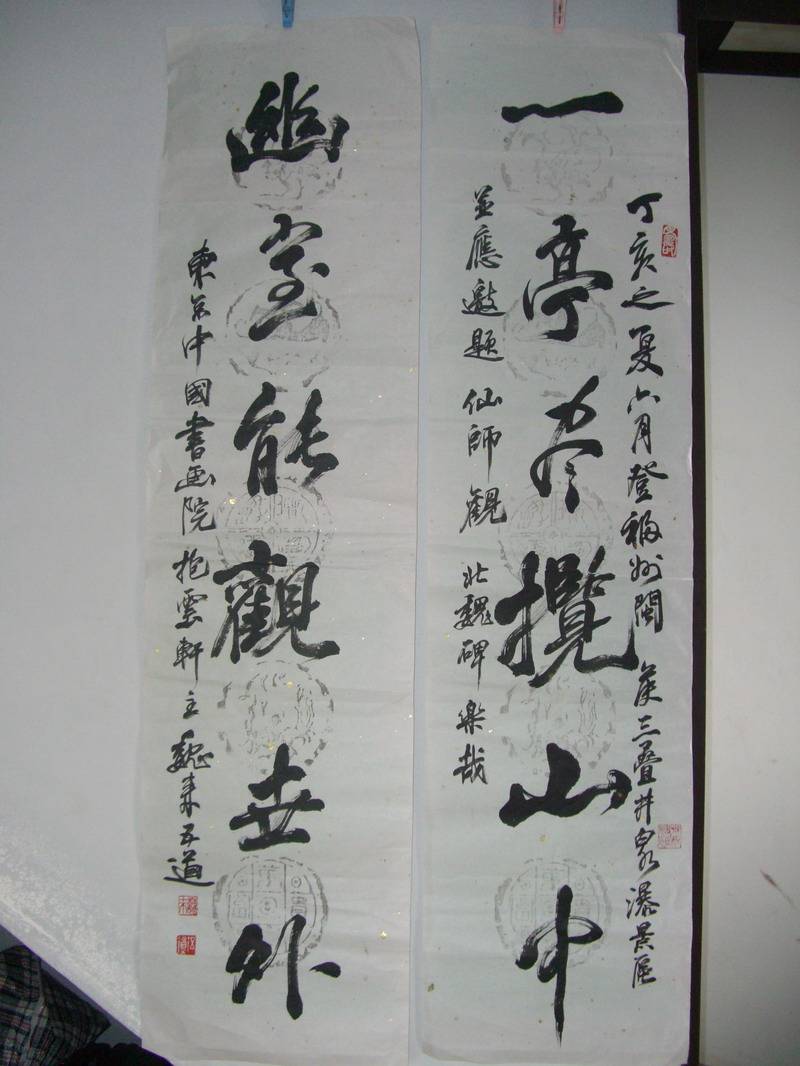 丁亥之夏六月登福州閩侯三疊井泉瀑景區
一亭尽攬山中
並應邀題仙師觀北魏碑樂哉
幽室能觀世外
東京中國書畫院抱雲軒主魏